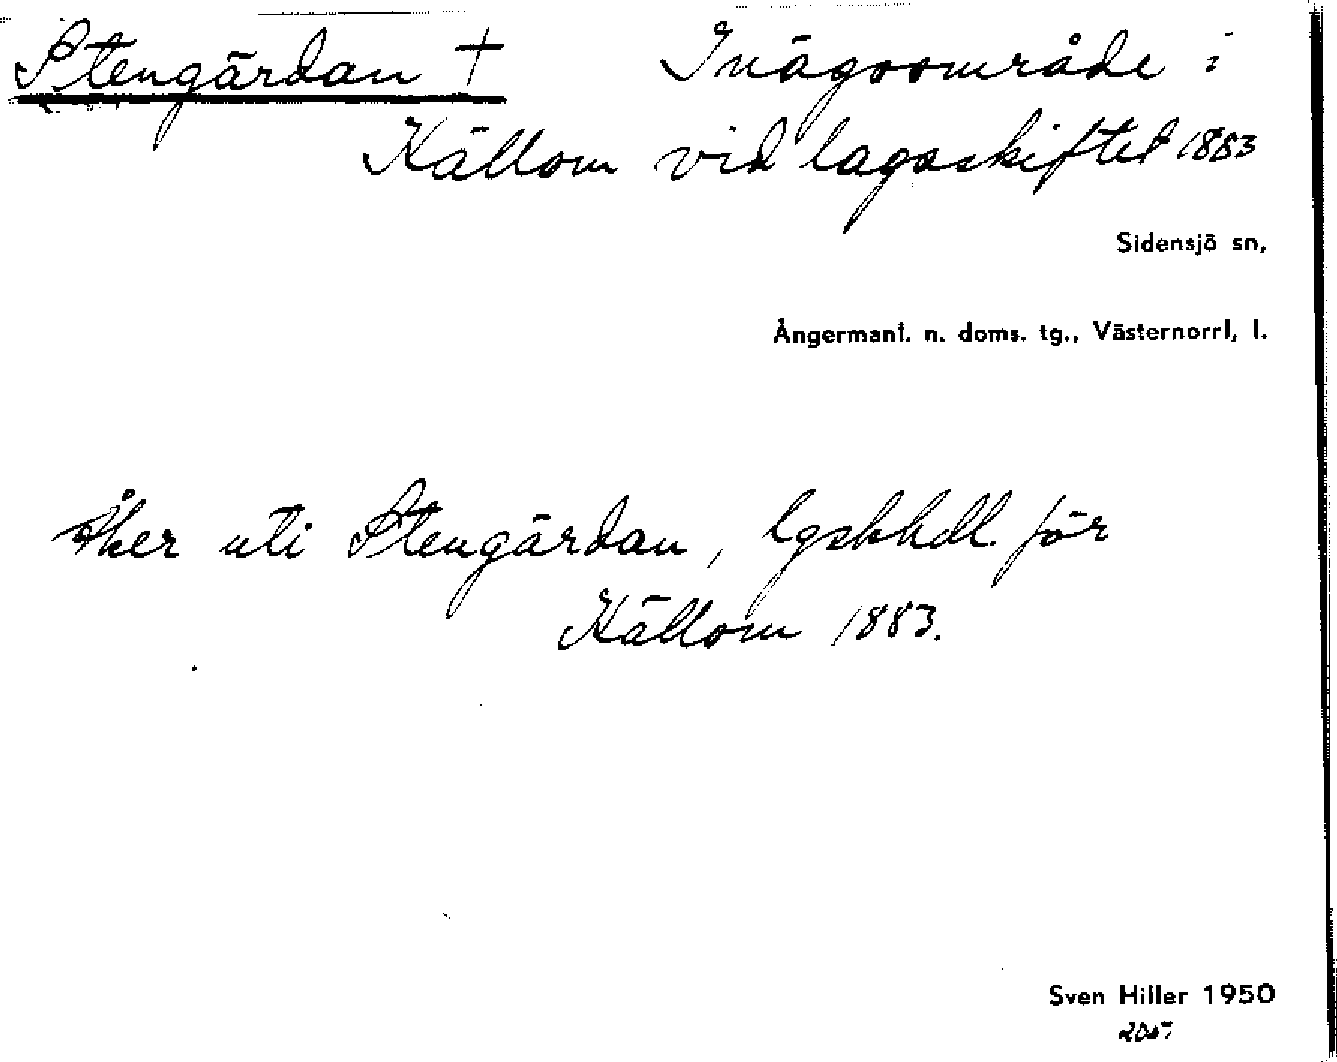 Stengärdan † Inägoområde i
Källom vid lagaskiftet 1883
Sidensjö sn,
Ångermanl. n. doms. tg., Västernorrl, l.
Åker uti Stengärdan, lgskhdl. för
Källom 1883.
Sven Hiller 1950